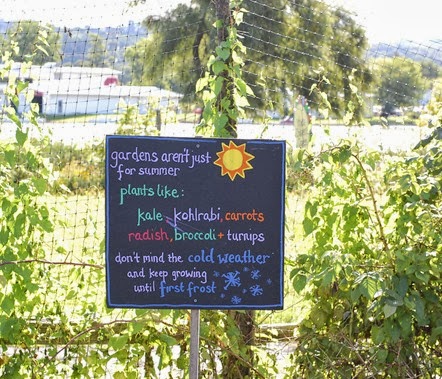 gardens aren't just
for summer
plants like:
kale, kohlrabi, carrots
radish, broccoli + turnips
don't mind the cold weather
and keep growing
until first frost